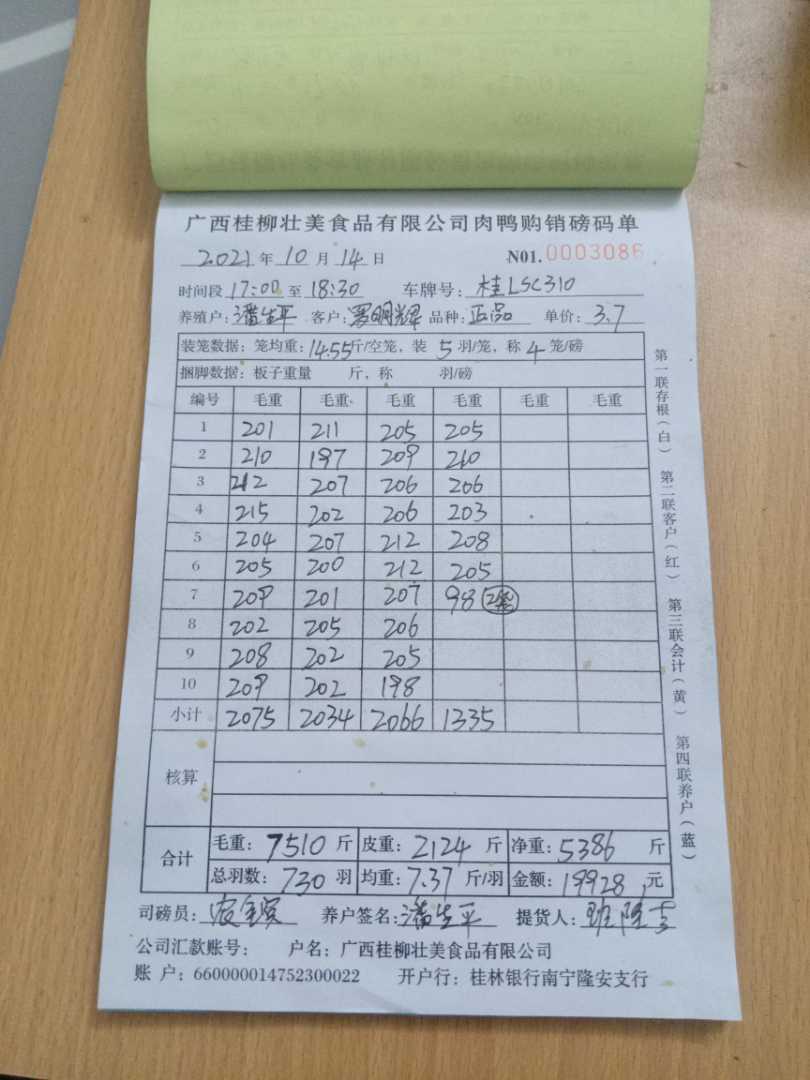 广西桂柳壮美食品有限公司肉鸭购销磅码单
2021年10月14日 N01.0003086
时间段17:00至18:30 车牌号:桂LSC310
养殖户:潘生平 客户:罗明辉 品种:正品 单价:3.7
装笼数据:笼均重:14.55斤/空笼,装5羽/笼,称4笼/磅
捆脚数据:板子重量 斤,称 羽/磅
编号 毛重 毛重 毛重 毛重 毛重 毛重
1 201 211 205 205
2 210 197 209 210
3 212 207 206 206
4 215 202 206 203
5 204 207 212 208
6 205 200 212 205
7 209 201 207 98 2笼
8 202 205 206
9 208 202 205
10 209 202 198
小计 2075 2034 2066 1335
核算
合计 毛重:7510斤 皮重:2124斤 净重:5386斤
总羽数:730羽 均重:7.37斤/羽 金额:19928元
司磅员: 养户签名:潘生平 提货人:
公司汇款账号: 户名:广西桂柳壮美食品有限公司
账 户:660000014752300022 开户行:桂林银行南宁隆安支行
第一联存根(白) 第二联客户(红) 第三联会计(黄) 第四联养户(蓝)